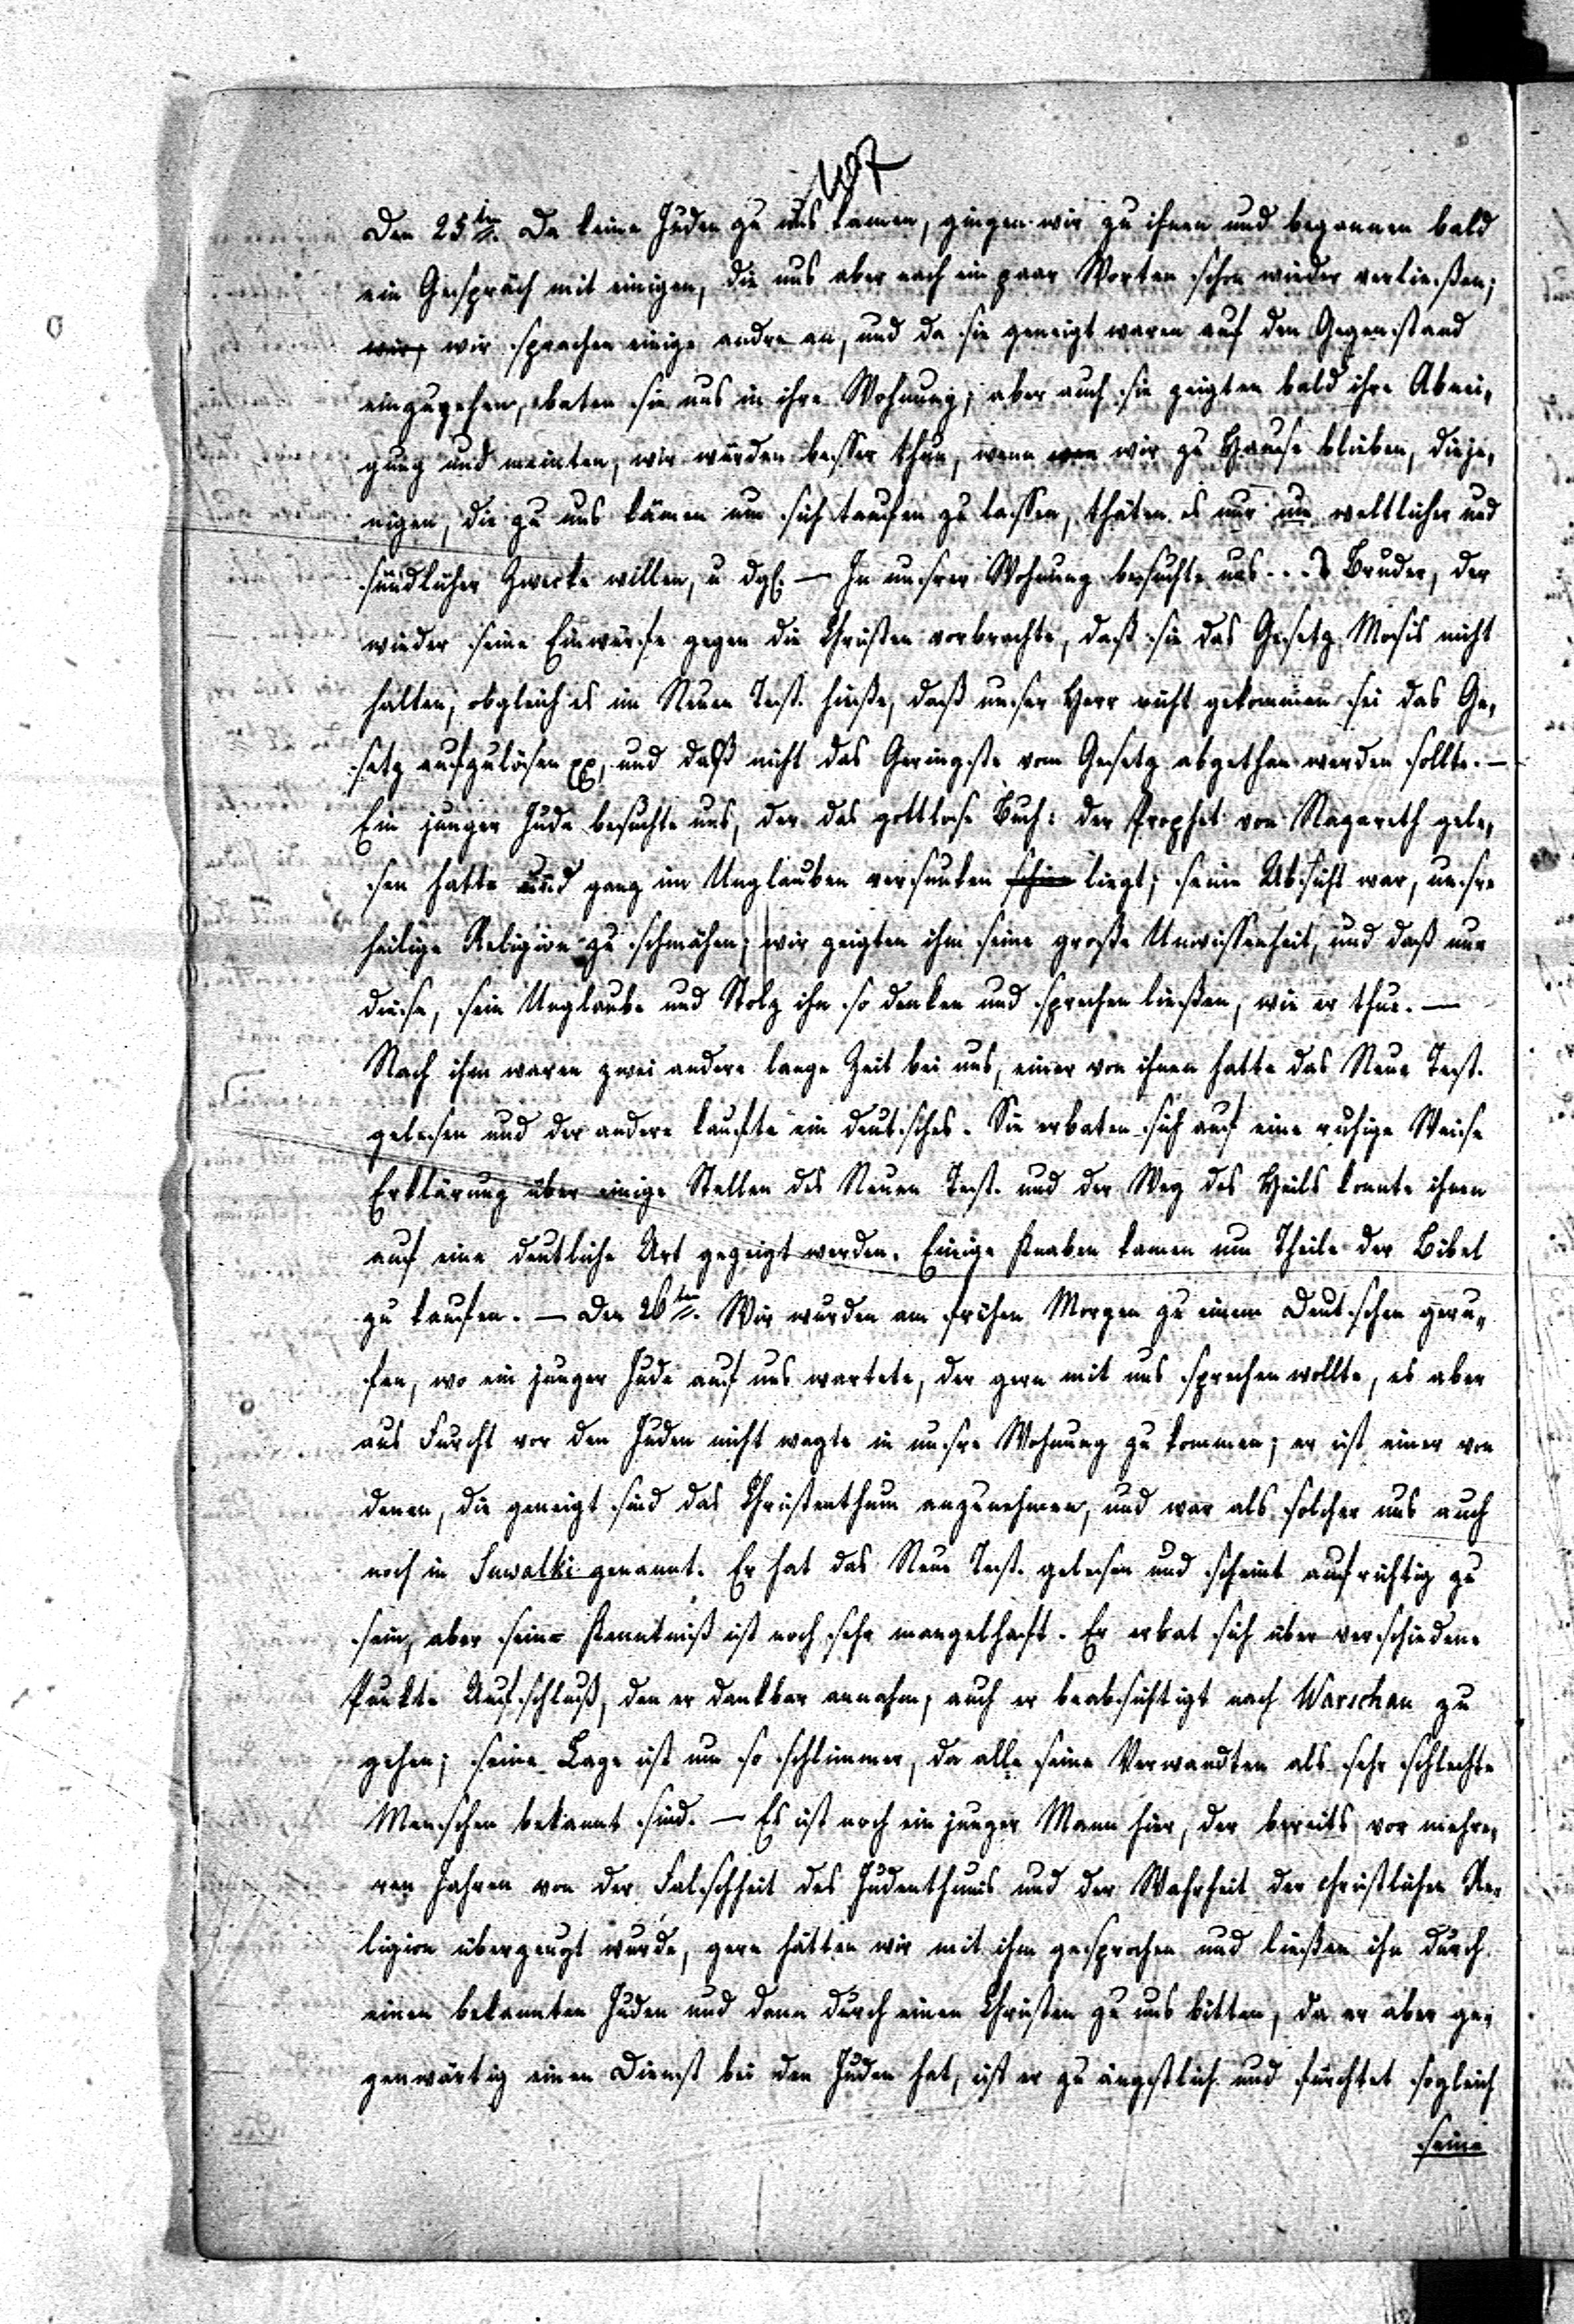 107
Den 25ten. Da keine Juden zu uns kamen, gingen wir zu ihnen und begannen bald
ein Gespräch mit einigen, die uns aber nach ein paar Worten schon wieder verließen;
wir sprachen einige andre an, und da sie geneigt waren auf den Gegenstand
einzugehen, baten sie uns in ihre Wohnung; aber auch sie zeigten bald ihre Abnei-
gung und meinten, wir würden besser thun, wenn wir zu Hause blieben, dieje-
nigen, die zu uns kämen um sich taufen zu lassen, thäten es nur um weltlicher und
sündlicher Zwecke willen, u dgl. — In unsrer Wohnung besuchte uns . . . s Bruder, der
wieder seine Einwürfe gegen die Christen vorbrachte, daß sie das Gesetz Mosis nicht
halten, obgleich es im Neuen Test. hieße, daß unser Herr nicht gekommen sei das Ge-
setz aufzulösen pp, und daß nicht das Geringste vom Gesetz abgethan werden sollte. —
Ein junger Jude besuchte uns, der das gottlose Buch: der Prophet von Nazareth gele-
sen hatte und ganz im Unglauben versunken liegt; seine Absicht war, unsre
heilige Religion zu schmähen; wir zeigten ihm seine große Unwissenheit, und daß nur
diese, sein Unglaube und Stolz ihn so denken und sprechen ließen, wie er thue. —
Nach ihm waren zwei andere lange Zeit bei uns, einer von ihnen hatte das Neue Test.
gelesen und der andere kaufte ein deutsches. Sie erbaten sich auf eine ruhige Weise
Erklärung über einige Stellen des Neuen Test. und der Weg des Heils konnte ihnen
auf eine deutliche Art gezeigt werden. Einige Knaben kamen um Theile der Bibel
zu kaufen. — Den 26ten. Wir wurden am frühen Morgen zu einem Deutschen geru-
fen, wo ein junger Jude auf uns wartete, der gern mit uns sprechen wollte, es aber
aus Furcht vor den Juden nicht wagte in unsre Wohnung zu kommen; er ist einer von
denen, die geneigt sind das Christenthum anzunehmen, und war als solcher uns auch
noch in Suwalki genannt. Er hat das Neue Test. gelesen und scheint aufrichtig zu
sein, aber seine Kenntniß ist noch sehr mangelhaft. Er erbat sich über verschiedene
Punkte Aufschluß, den er dankbar annahm, auch er beabsichtigt nach Warschau zu
gehen; seine Lage ist um so schlimmer, da alle seine Verwandten als sehr schlechte
Menschen bekannt sind. — Es ist noch ein junger Mann hier, der bereits vor mehre-
ren Jahren von der Falschheit des Judenthums und der Wahrheit der christlichen Re-
ligion überzeugt wurde, gern hätten wir mit ihm gesprochen und ließen ihn durch
einen bekannten Juden und dann durch einen Christen zu uns bitten, da er aber ge-
genwärtig einen Dienst bei den Juden hat, ist er zu ängstlich und fürchtet sogleich
seine